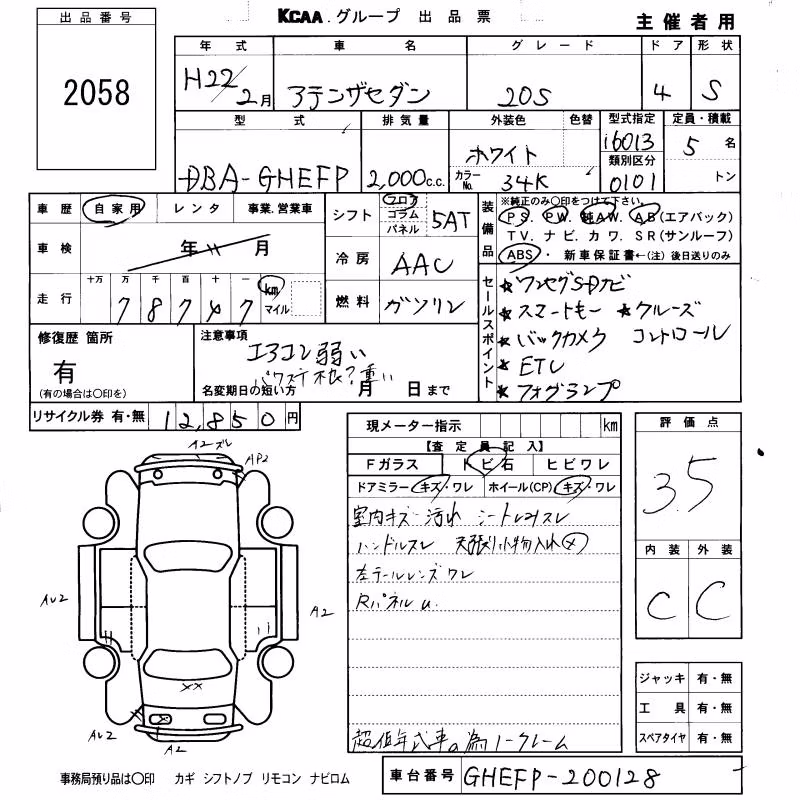 KCAA.グループ 出品票
主催者用
出品番号
2058
年式 車名 グレード ドア 形状
H22/2月 アテンザセダン 20S 4 S
型式 排気量 外装色 色替 型式指定 定員・積載
16013
ホワイト
類別区分
5名
DBA-GHEFP 2,000c.c. カラーNo. 34K 0101 トン
車歴 自家用 レンタ 事業.営業車
シフト フロア コラム パネル 5AT
装備品 ※純正のみ〇印をつけて下さい。
PS. PW. 純AW. AB(エアバック)
TV. ナビ. カワ. SR(サンルーフ)
ABS・新車保証書←(注)後日送りのみ
車検 年 月
冷房 AAC
走行 十万 万 千 百 十 一 km マイル
78747
燃料 ガソリン
セールスポイント
★ワンセグSDナビ
★スマートキー ★クルーズ
★バックカメラ コントロール
★ETC
★フォグランプ
修復歴 箇所
有
(有の場合は〇印を)
注意事項
エアコン弱い
パワステ不良?重い
名変期日の短い方 月 日まで
リサイクル券 有・無 12,850円
現メーター指示 km
【査定員記入】
Fガラス トビ石 ヒビワレ
ドアミラー キズ・ワレ ホイール(CP) キズ・ワレ
室内キズ 汚れ シート
ハンドルスレ 天張り小物入れ
左テールレンズワレ
Rパネルu.
超低年式車の為ノークレーム
評価点
3.5
内装 外装
C C
ジャッキ 有・無
工具 有・無
スペアタイヤ 有・無
A2ズレ
AP2
AU2
A2
××
AU2
A2
事務局預り品は〇印 カギ シフトノブ リモコン ナビロム
車台番号 GHEFP-200128